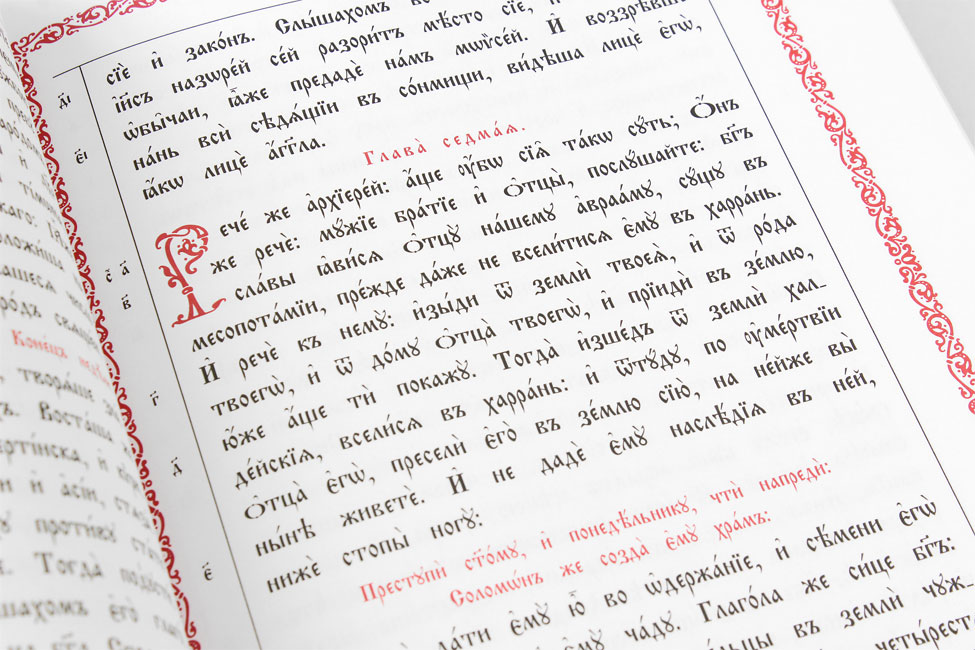 сїѐ и҆ зако́нъ. Слы́шахомъ
і҆и҃съ назѡре́й се́й разори́тъ мѣ́сто сїѐ,
ѡ҆бы́чаи, ꙗ҆̀же предадѐ на́мъ мѡѷсе́й. И҆ воззрѣ́вше
на́нь всѝ сѣдѧ́щїи въ со́нмищи, ви́дѣша лицѐ є҆гѡ̀,
ꙗ҆́кѡ лицѐ а҆́гг҃ла.
Глава̀ седма́ѧ.
Рече́ же а҆рхїере́й: а҆́ще ᲂу҆̀бѡ сїѧ̑ та́кѡ сꙋ́ть; Ѻ҆́нъ
же речѐ: мꙋ́жїе бра́тїе и҆ ѻ҆тцы̀, послꙋ́шайте: бг҃ъ
сла́вы ꙗ҆ви́сѧ ѻ҆тцꙋ̀ на́шемꙋ а҆враа́мꙋ, сꙋ́щꙋ въ
месопота́мїи, пре́жде да́же не всели́тисѧ є҆мꙋ̀ въ харра́нь.
И҆ речѐ къ немꙋ̀: и҆зы́ди ѿ землѝ твоеѧ̀, и҆ ѿ ро́да
твоегѡ̀, и҆ ѿ до́мꙋ ѻ҆тца̀ твоегѡ̀, и҆ прїидѝ въ зе́млю,
ю҆́же а҆́ще тѝ покажꙋ̀. Тогда̀ и҆зше́дъ ѿ землѝ хал-
де́йскїѧ, всели́сѧ въ харра́нь: и҆ ѿтꙋ́дꙋ, по ᲂу҆ме́ртвїи
ѻ҆тца̀ є҆гѡ̀, преселѝ є҆го̀ въ зе́млю сїю̀, на не́йже вы̀
ны́нѣ живетѐ. И҆ не дадѐ є҆мꙋ̀ наслѣ́дїѧ въ не́й,
нижѐ стопы̀ ногꙋ̀:
Престꙋпѝ ст҃о́мꙋ, и҆ понедѣ́льникꙋ, чтѝ напредѝ:
Соломѡ́нъ же созда̀ є҆мꙋ̀ хра́мъ:
да́ти є҆мꙋ̀ ю҆̀ во ѡ҆держа́нїе, и҆ сѣ́мени є҆гѡ̀
є҆мꙋ̀ ча́дꙋ. Глаго́ла же си́це бг҃ъ:
въ землѝ чꙋж-
четы́рест
д҃і
є҃і
с҃ а҃
в҃
г҃
д҃
є҃
Коне́цъ
твора́ше
Воста́ша
и҆ а҆сі́и,
проти́вꙋ
Тогда̀
є҆го̀